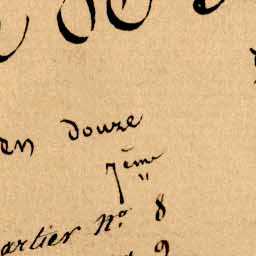 en douze
7ème
artier no. 8
9